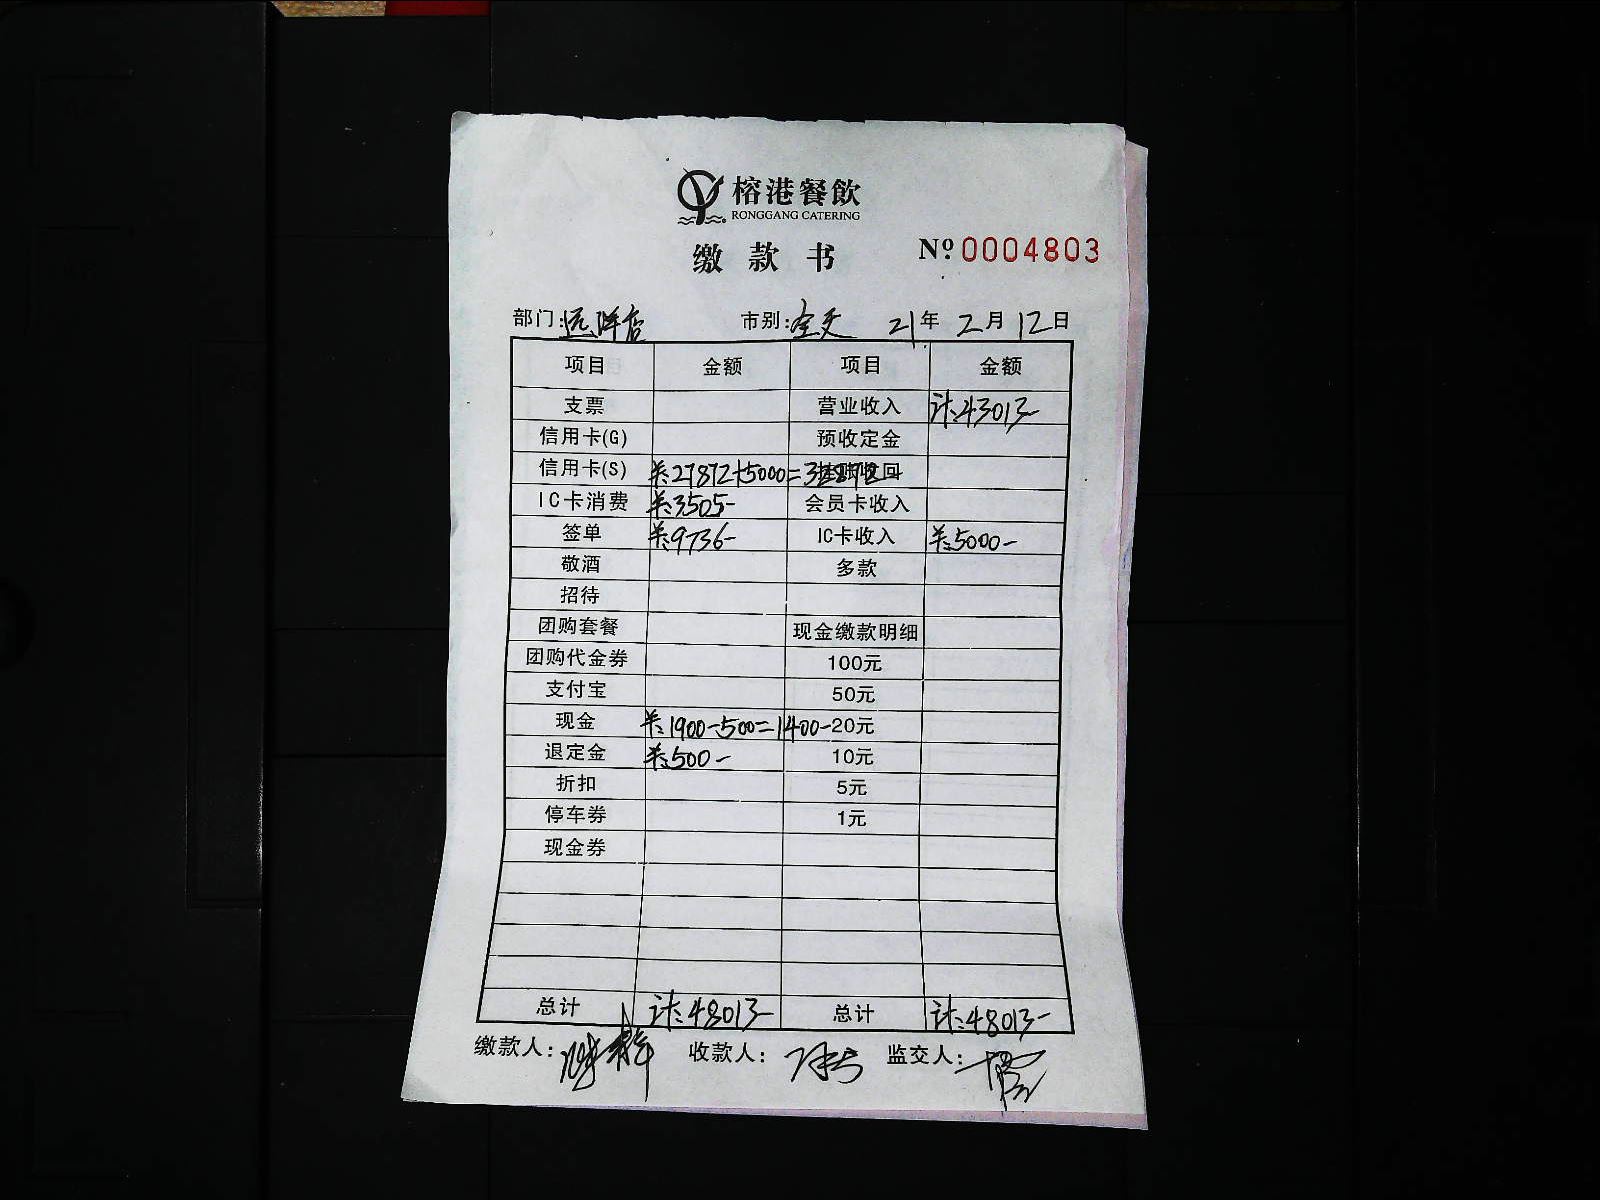 榕港餐飲
RONGGANG CATERING
缴款书 № 0004803
部门:远洋店 市别:全天 21年2月12日
项目 金额 项目 金额
支票 营业收入 计:43013-
信用卡(G) 预收定金
信用卡(S) 羊:27872+5000=32872 收回
IC卡消费 羊:3505- 会员卡收入
签单 羊:9736- IC卡收入 羊:5000-
敬酒 多款
招待
团购套餐 现金缴款明细
团购代金券 100元
支付宝 50元
现金 羊:1900-500=1400- 20元
退定金 羊:500- 10元
折扣 5元
停车券 1元
现金券
总计 计:48013- 总计 计:48013-
缴款人: 收款人: 监交人: